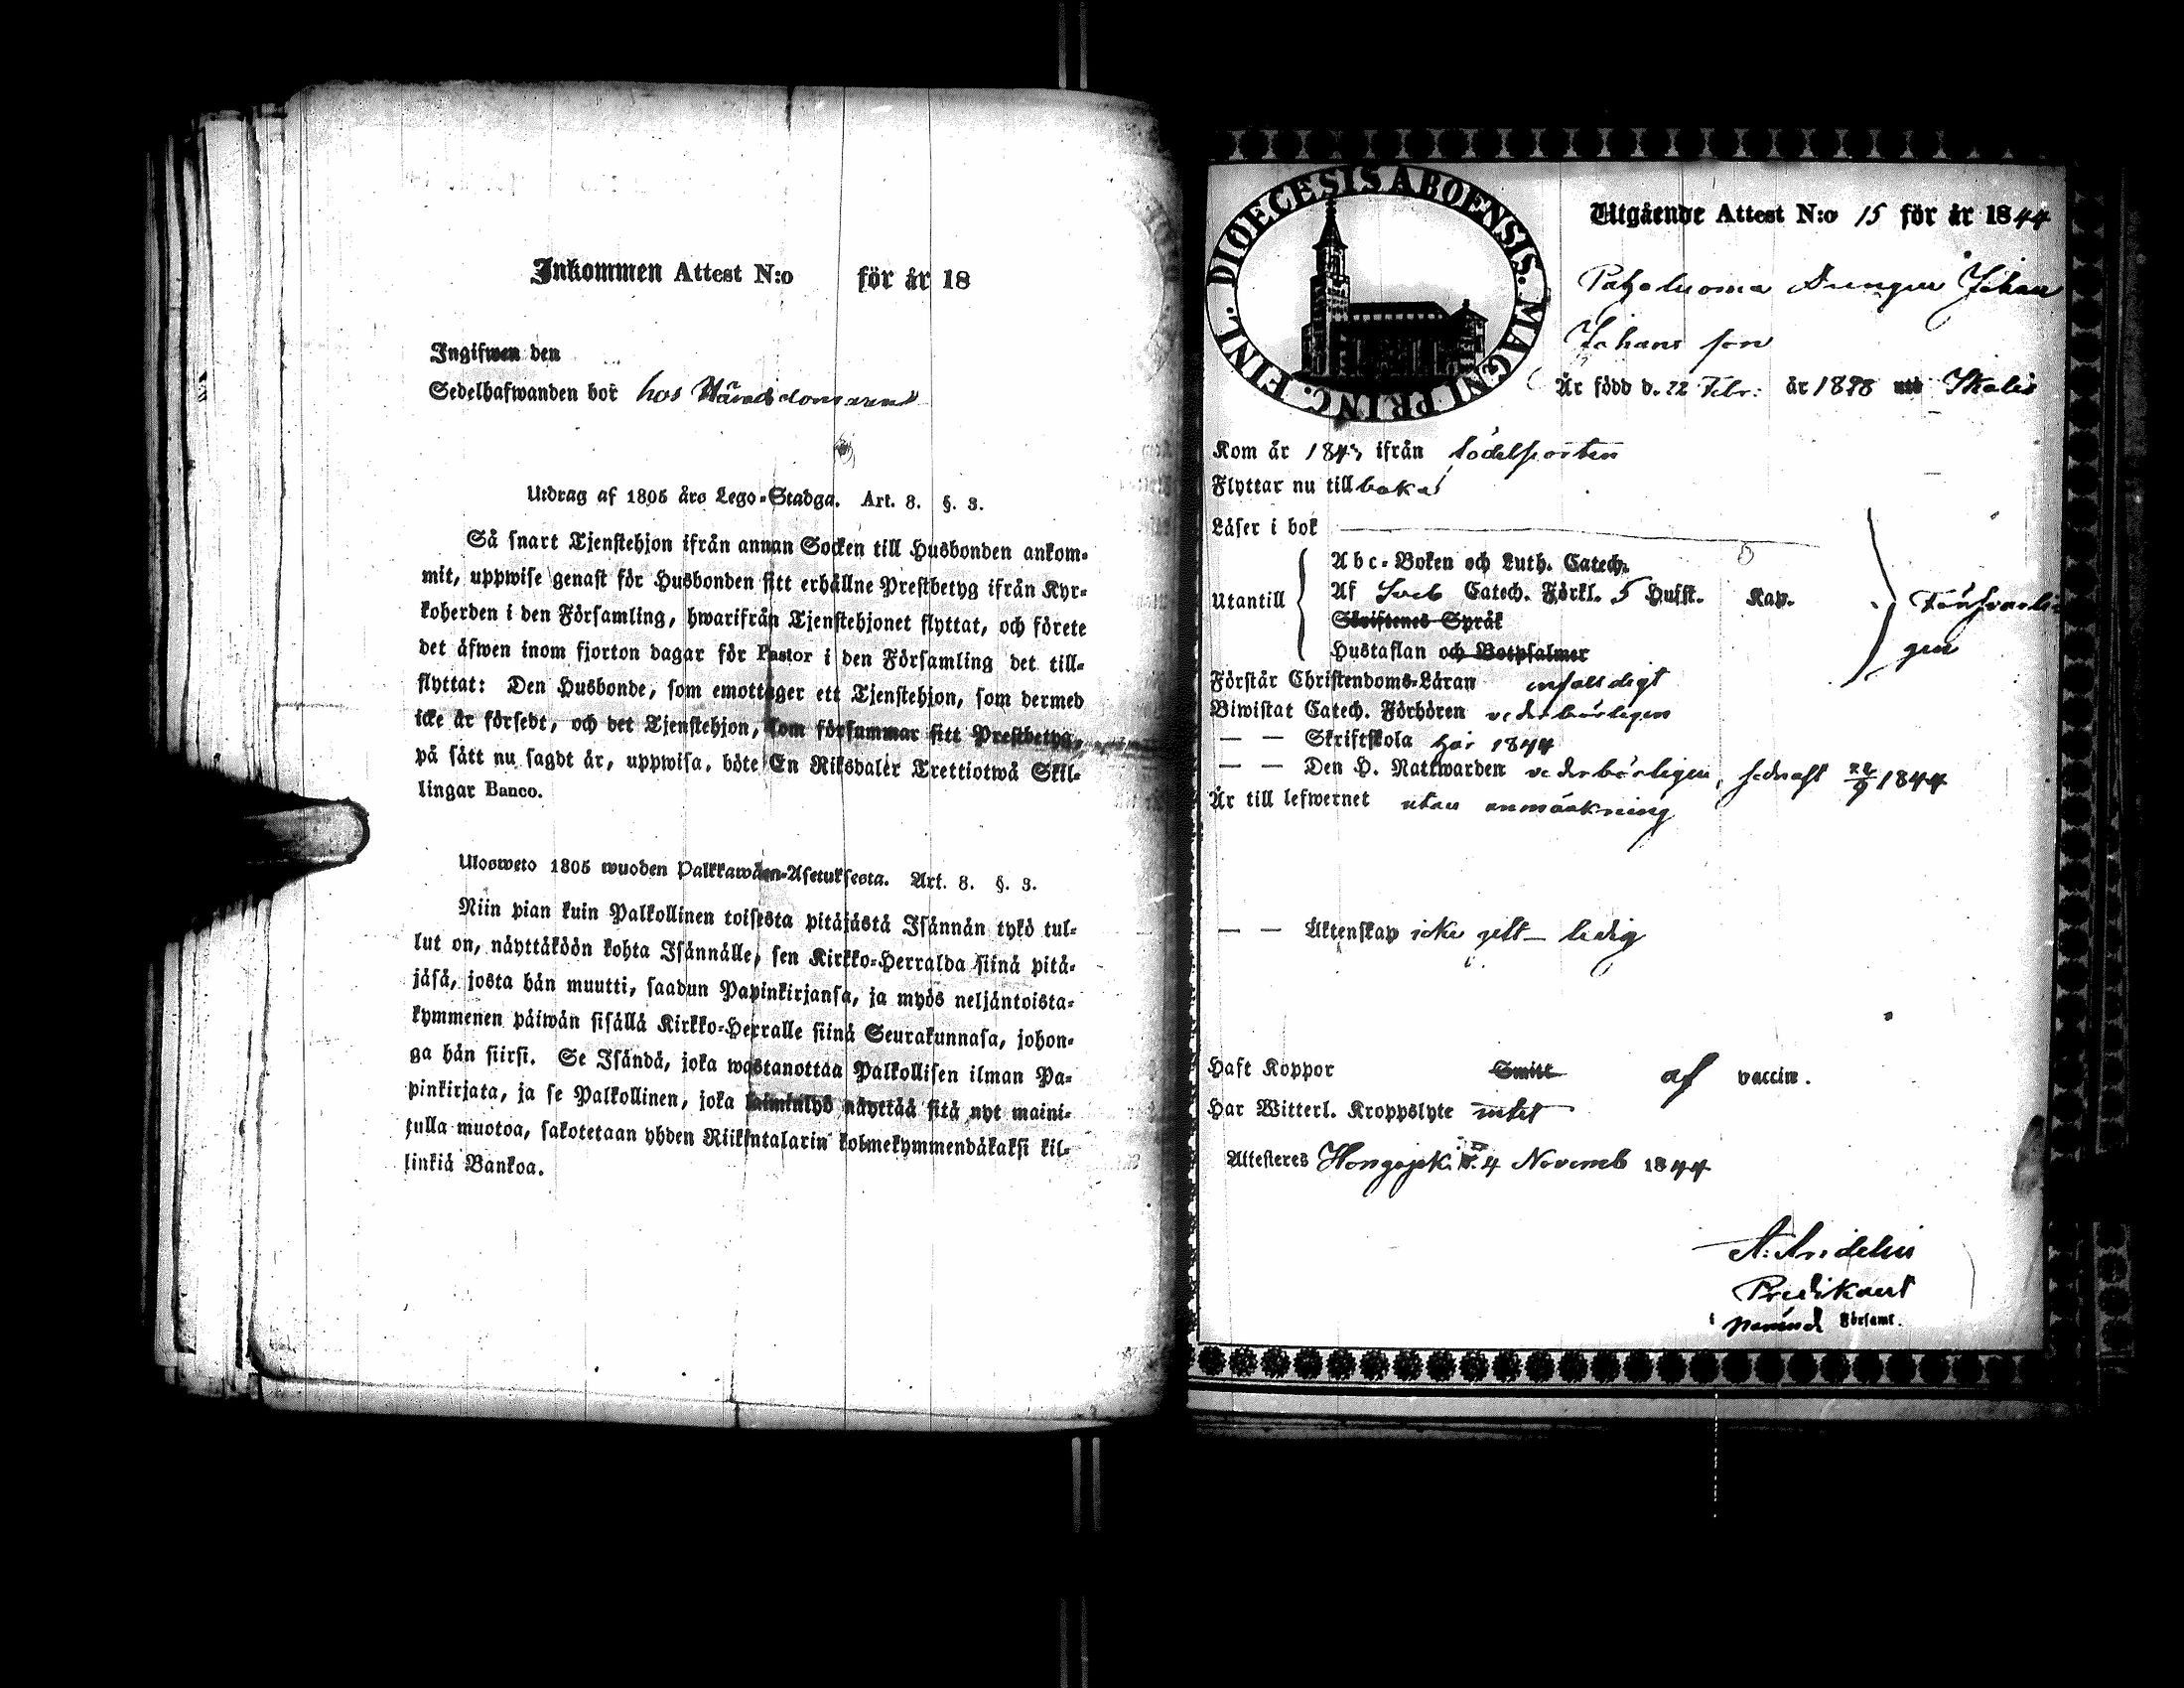 Inkommen Attest N:o för år 18
Ingifwen den
Sedelhafwanden bor hos
Utdrag af 1805 års Lego-Stadga. Art. 8. §. 3.
Så snart Tjenstehjon ifrån annan Socken till Husbonden ankom-
mit, uppwise genast för Husbonden sitt erhållne Prestbetyg ifrån Kyr-
koherden i den Församling, hwarifrån Tjenstehjonet flyttat, och förete
det äfwen inom fjorton dagar för Pastor i den Församling det till-
flyttat: Den Husbonde, som emottager ett Tjenstehjon, som dermed
icke är försedt, och det Tjenstehjon, som försummar sitt Prestbetyg,
på sätt nu sagdt är, uppwisa, böte En Riksdaler Trettiotwå Skil-
lingar Banco.
Ulosweto 1805 wuoden Palkkawäen-Asetuksesta. Art. 8. §. 3.
Niin pian kuin Palkollinen toisesta pitäjästä Isännän tykö tul-
lut on, näyttäköön kohta Isännälle, sen Kirkko-Herralda siinä pitä-
jäsä, josta hän muutti, saadun Papinkirjansa, ja myös neljäntoista-
kymmenen päiwän sisällä Kirkko-Herralle siinä Seurakunnasa, johon-
ga hän siirsi. Se Isändä, joka wastanottaa Palkollisen ilman Pa-
pinkirjata, ja se Palkollinen, joka laiminlyö näyttää sitä nyt maini-
tulla muotoa, sakotetaan yhden Riikintalarin kolmekymmendäkaksi kil-
linkiä Bankoa.
DIOECESIS ABOENSIS. MAGNI PRINC. FINL.
Utgående Attest N:o 15 för år 1844
Drengen Johan
Johans son
Är född d. 22 Febr: år 18 Ikalis
Kom år 184 ifrån
Flyttar nu tillbaka
Läser i bok
Abc-Boken och Luth. Catech.
Utantill Af Sveb Catech. Förkl. 5 Husst. Kap.
Skriftenes Språk
Hustaflan och Botpsalmer
Förstår Christendoms-Läran enfaldigt
Biwistat Catech. Förhören vederbörligen
— — Skriftskola här 1844
— — Den H. Nattwarden vederbörligen, sednast 1844
Är till lefwernet utan anmärkning
— — Äktenskap icke gift - ledig
Haft Koppor Smitt af vaccin.
Har Witterl. Kroppslyte intet
Attesteras Hongojok. d. 4 Novemb 1844
A. Aridelin
Predikant
i nämnd Församl.